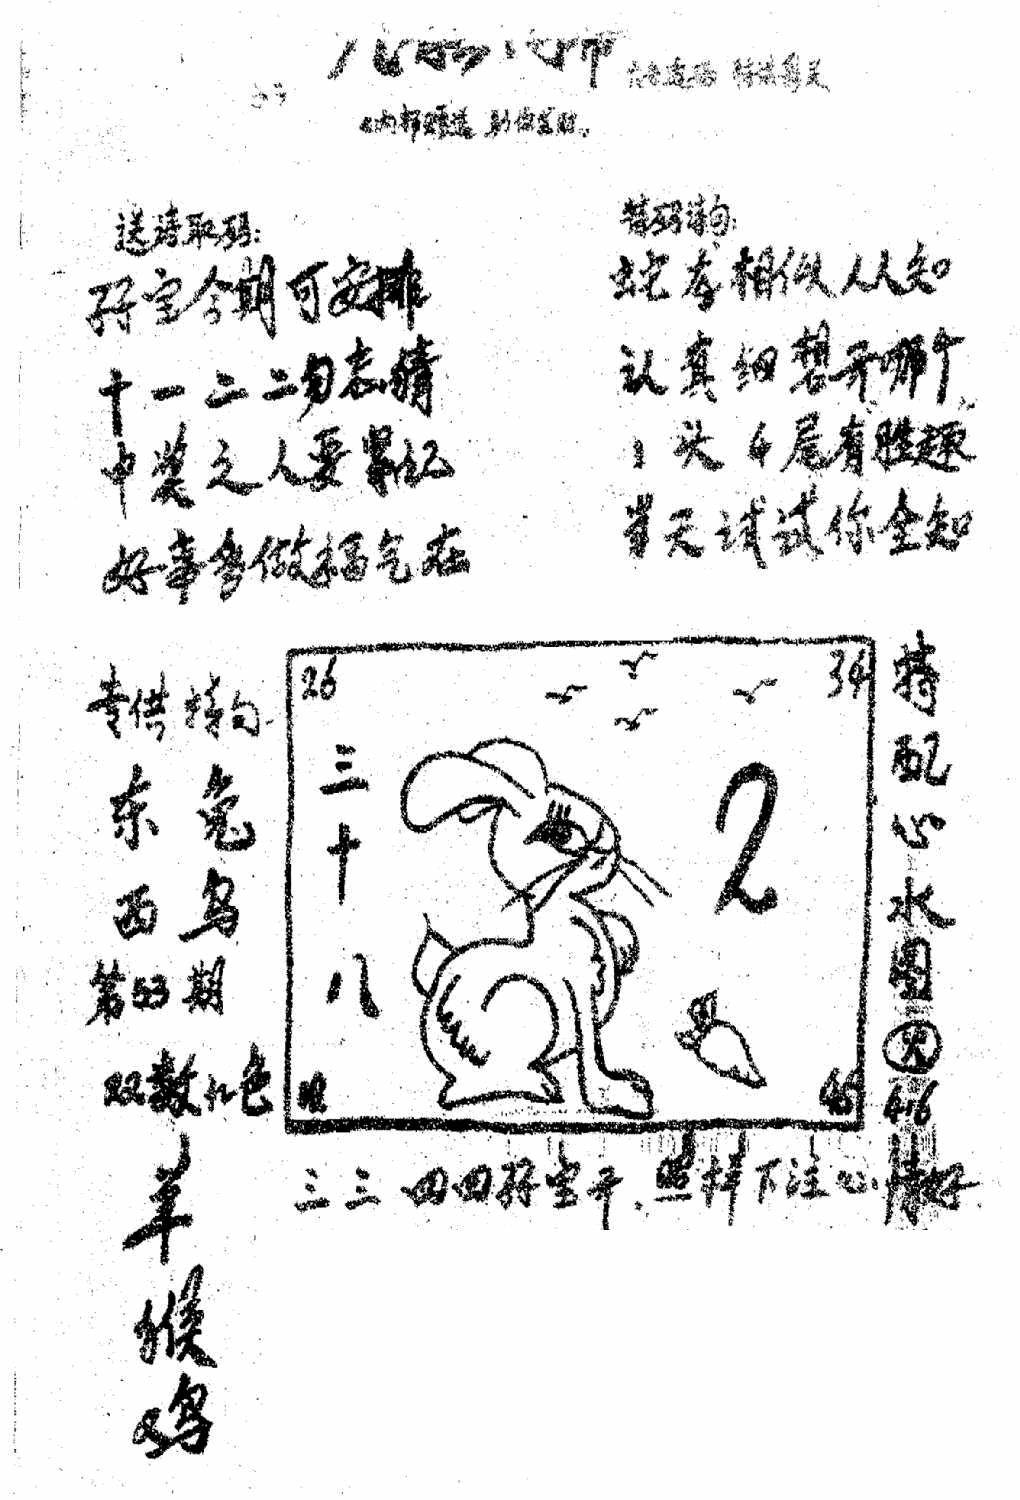 送诗取码:
特码诗句:
好字今期可安排
十一二二勿忘猜
中奖之人要紧记
好事多做福气在
蛇老相似人人知
认真细想开哪个
1头4尾有胜趣
当天试试你全知
专供特句
东兔
西鸟
第53期
双数红色
羊
猴
鸡
26
34
三十八
2
46
特配心水图
416
三三四四好字开.照样下注心情好